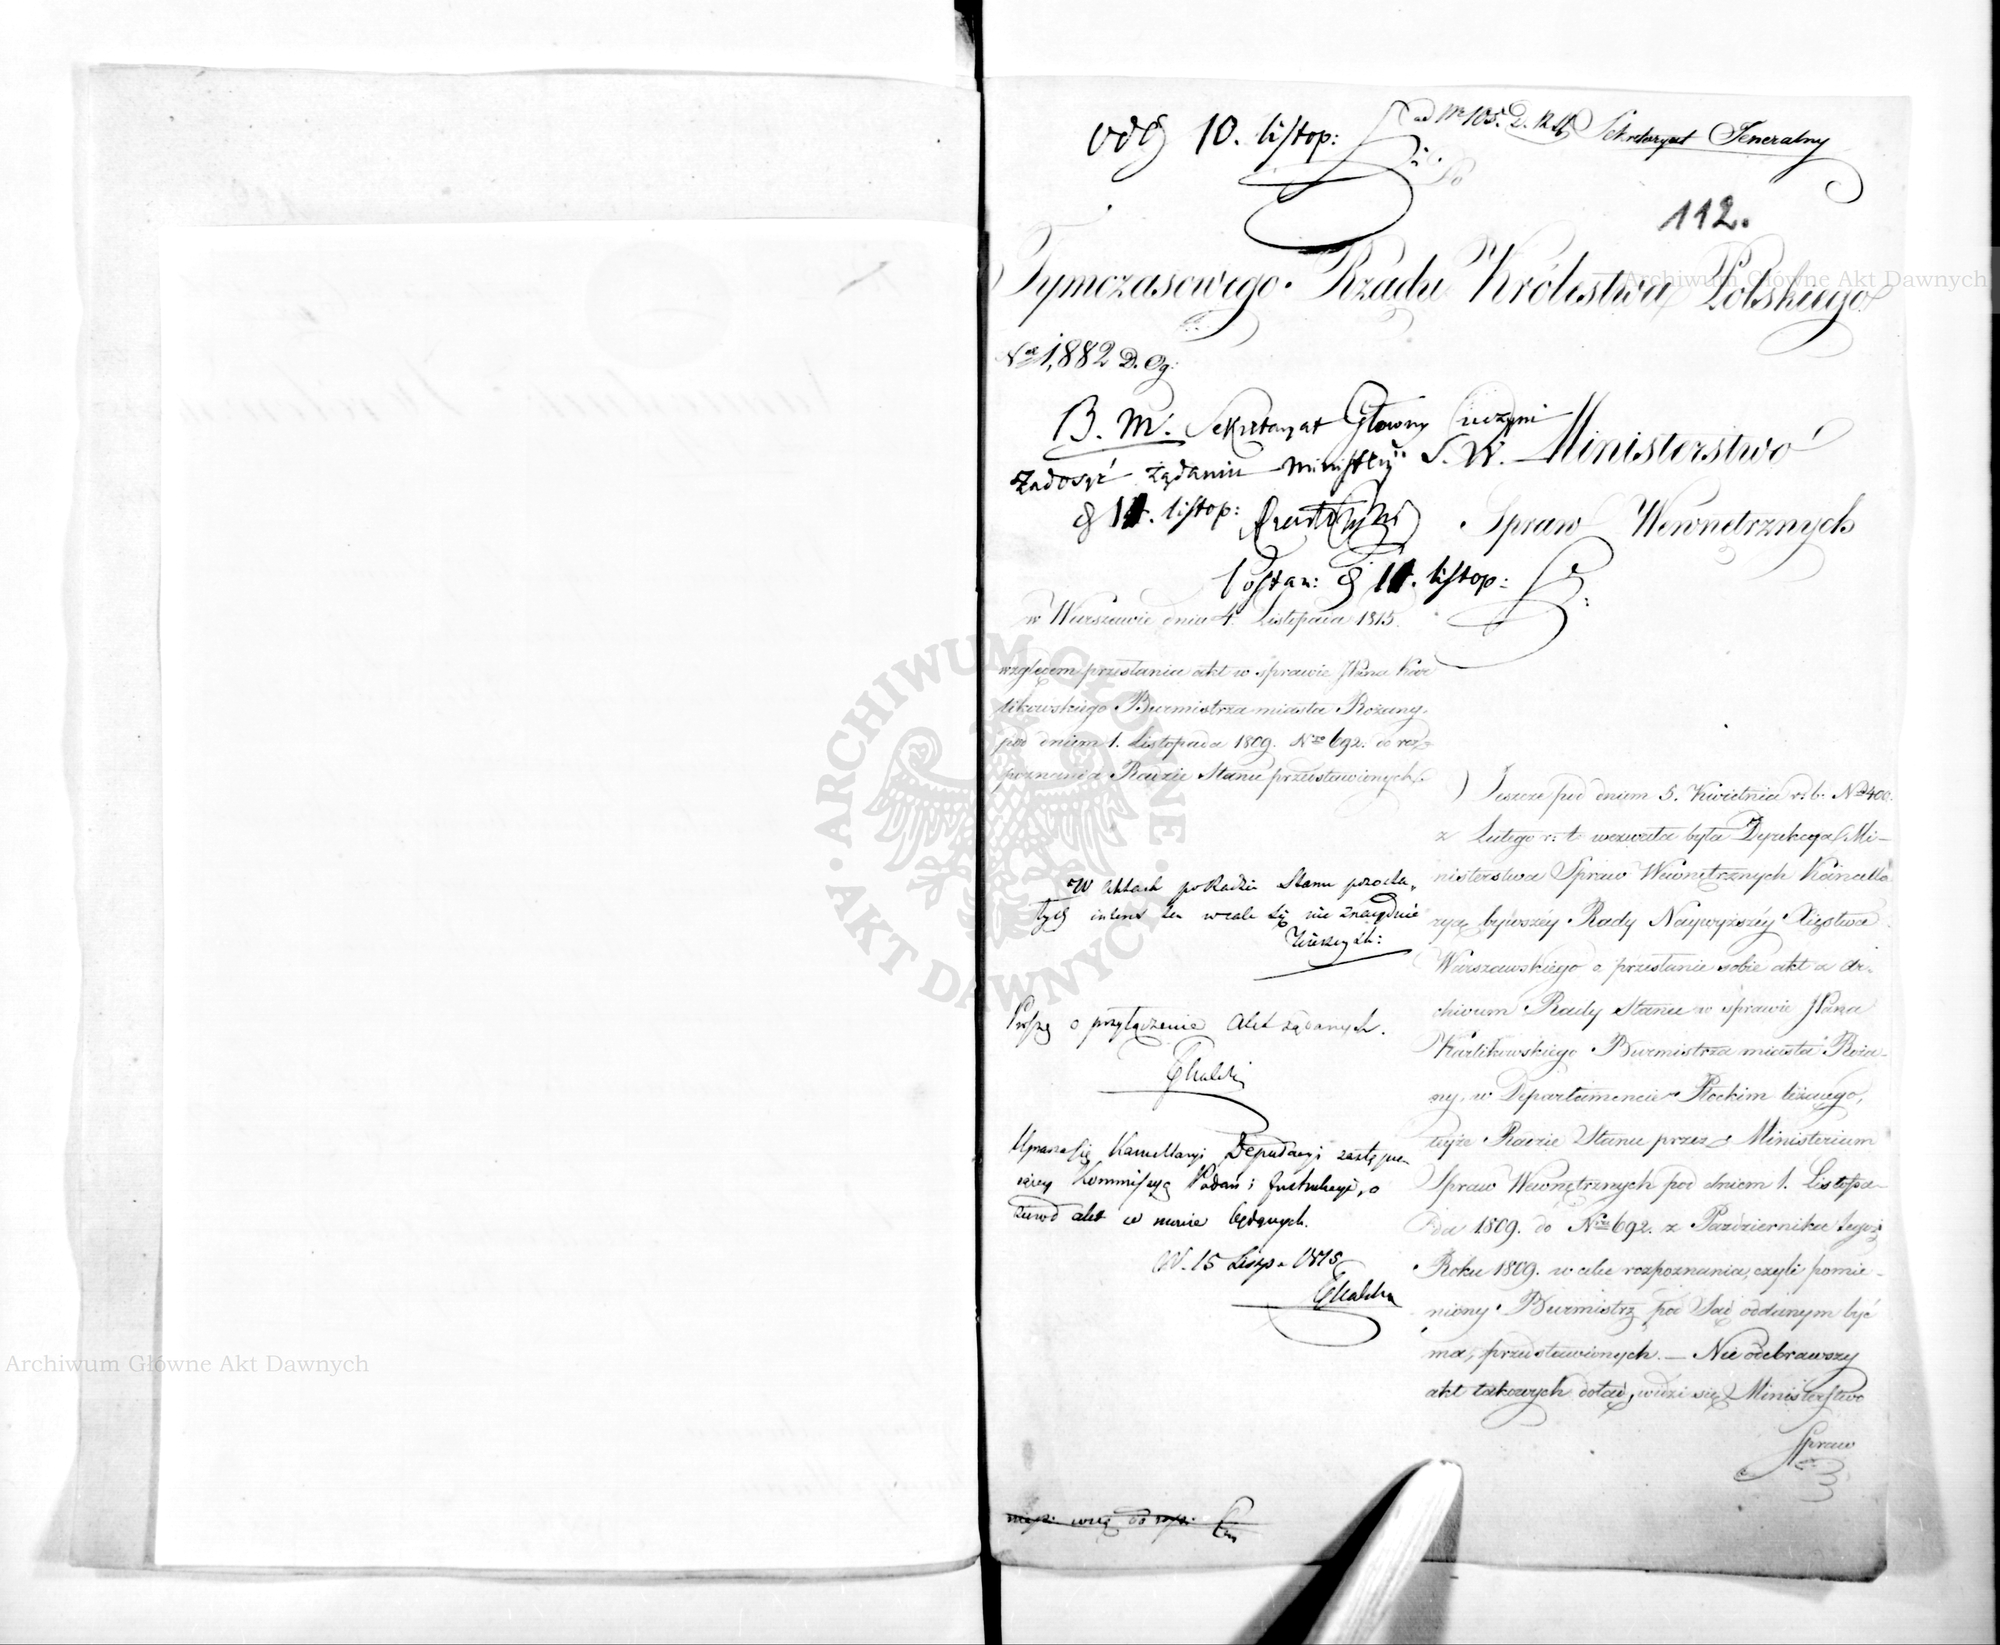 odb 10. listop:
ad Nr 105. D. R. St.
Sekretaryat Jeneralny
112.
Do
Tymczasowego Rządu Królestwa Polskiego
Nad 1,882 D. Og:
B. M. Sekretaryat Głowny uczyni
zadosyć żądaniu Ministeryi S. W.
listop:
Postan: listop:
Ministerstwo
Spraw Wewnętrznych
w Warszawie dnia 4. Listopada 1815.
względem przesłania akt w sprawie JPana Kar
likowskiego Burmistrza miasta Rożany,
pod dniem 1. Listopada 1809. Nro 692. do roz-
poznania Radzie Stanu przedstawionych.
W aktach po Radzie Stanu pozosta,
łych interes ten wcale się nie znayduie
Proszę o przyłączenie Akt żądanych.
Uprasza się Kancellaryi Deputacyi zastępu-
iącey Kommissyą Podań i Instrukcyi, o
akt w mowie będących.
W. 15 Listop. 1815
Jeszcze pod dniem 5. Kwietnia r. b. Nad 400.
z Lutego r. t. wezwała była Dyrekcya Mi-
nisterstwa Spraw Wewnętrznych Kancella
ryą bywszéy Rady Naywyższéy Xięstwa
Warszawskiego o przesłanie sobie akt z Ar-
chiwum Rady Stanu w sprawie JPana
Karlikowskiego Burmistrza miasta Roża-
ny, w Departamencie Płockim leżącego,
teyże Radzie Stanu przez Ministerium
Spraw Wewnętrznych pod dniem 1. Listopa-
da 1809. do Nro 692. z Października tegoż
Roku 1809. w celu rozpoznania, czyli pomie-
niony Burmistrz pod Sąd oddanym być
ma, przedstawionych. — Nie odebrawszy
akt takowych dotąd, widzi się Ministerstwo
Spraw
Archiwum Główne Akt Dawnych
Archiwum Główne Akt Dawnych
ARCHIWUM GŁÓWNE · AKT DAWNYCH ·